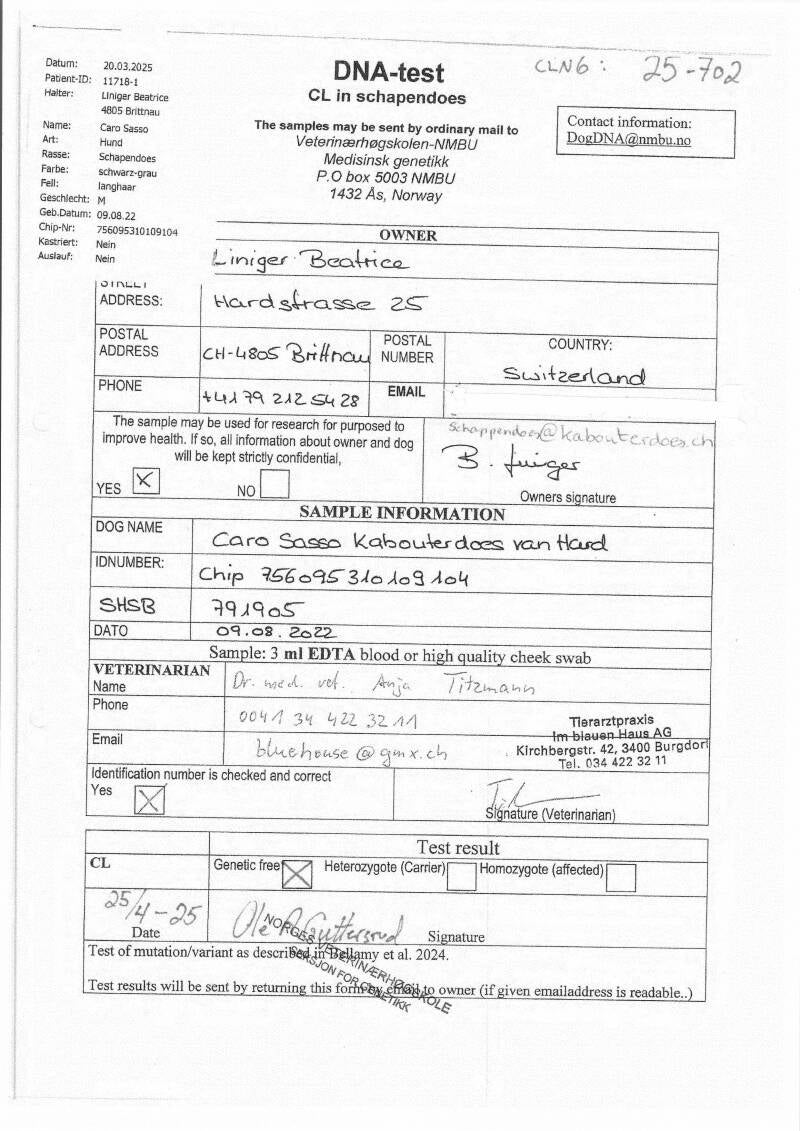 Datum: 20.03.2025
Patient-ID: 11718-1
Halter: Liniger Beatrice
4805 Brittnau
Name: Caro Sasso
Art: Hund
Rasse: Schapendoes
Farbe: schwarz-grau
Fell: langhaar
Geschlecht: M
Geb.Datum: 09.08.22
Chip-Nr: 756095310109104
Kastriert: Nein
Auslauf: Nein
DNA-test
CL in schapendoes
CLN6 : 25-702
The samples may be sent by ordinary mail to
Veterinærhøgskolen-NMBU
Medisinsk genetikk
P.O box 5003 NMBU
1432 Ås, Norway
Contact information:
DogDNA@nmbu.no
OWNER
Liniger Beatrice
STREET
ADDRESS: Hardstrasse 25
POSTAL ADDRESS CH-4805 Brittnau POSTAL NUMBER COUNTRY: Switzerland
PHONE +41 79 212 54 28 EMAIL
schappendoes@kabouterdoes.ch
The sample may be used for research for purposed to
improve health. If so, all information about owner and dog
will be kept strictly confidential,
YES X NO
B. Liniger
Owners signature
SAMPLE INFORMATION
DOG NAME Caro Sasso Kabouterdoes van Hard
IDNUMBER: Chip 756095310109104
SHSB 791905
DATO 09.08.2022
Sample: 3 ml EDTA blood or high quality cheek swab
VETERINARIAN
Name Dr. med. vet. Anja Titzmann
Phone 0041 34 422 32 11
Email bluehouse@gmx.ch
Tierarztpraxis
Im blauen Haus AG
Kirchbergstr. 42, 3400 Burgdorf
Tel. 034 422 32 11
Identification number is checked and correct
Yes X
Signature (Veterinarian)
Test result
CL Genetic free X Heterozygote (Carrier) Homozygote (affected)
25/4-25
Date Signature
NORGES VETERINÆRHØGSKOLE
SEKSJON FOR GENETIKK
Test of mutation/variant as described in Bellamy et al. 2024.
Test results will be sent by returning this form by email to owner (if given emailaddress is readable..)